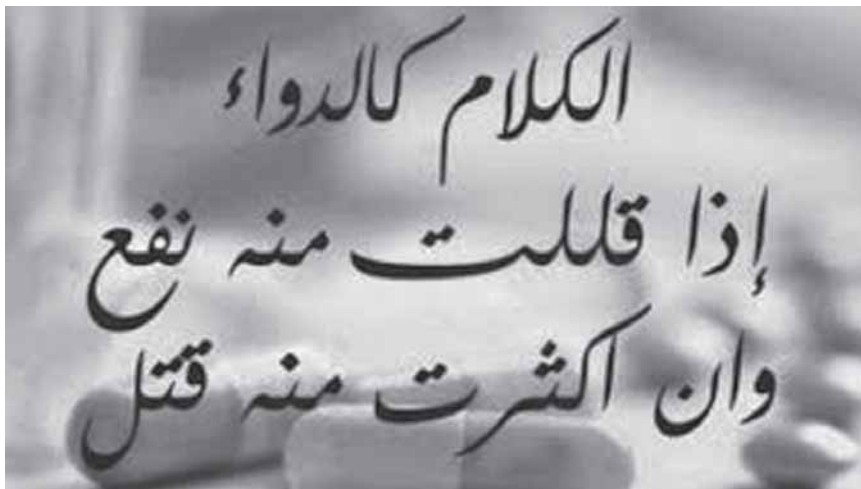 الكلام كالدواء
إذا قللت منه نفع
وان اكثرت منه قتل